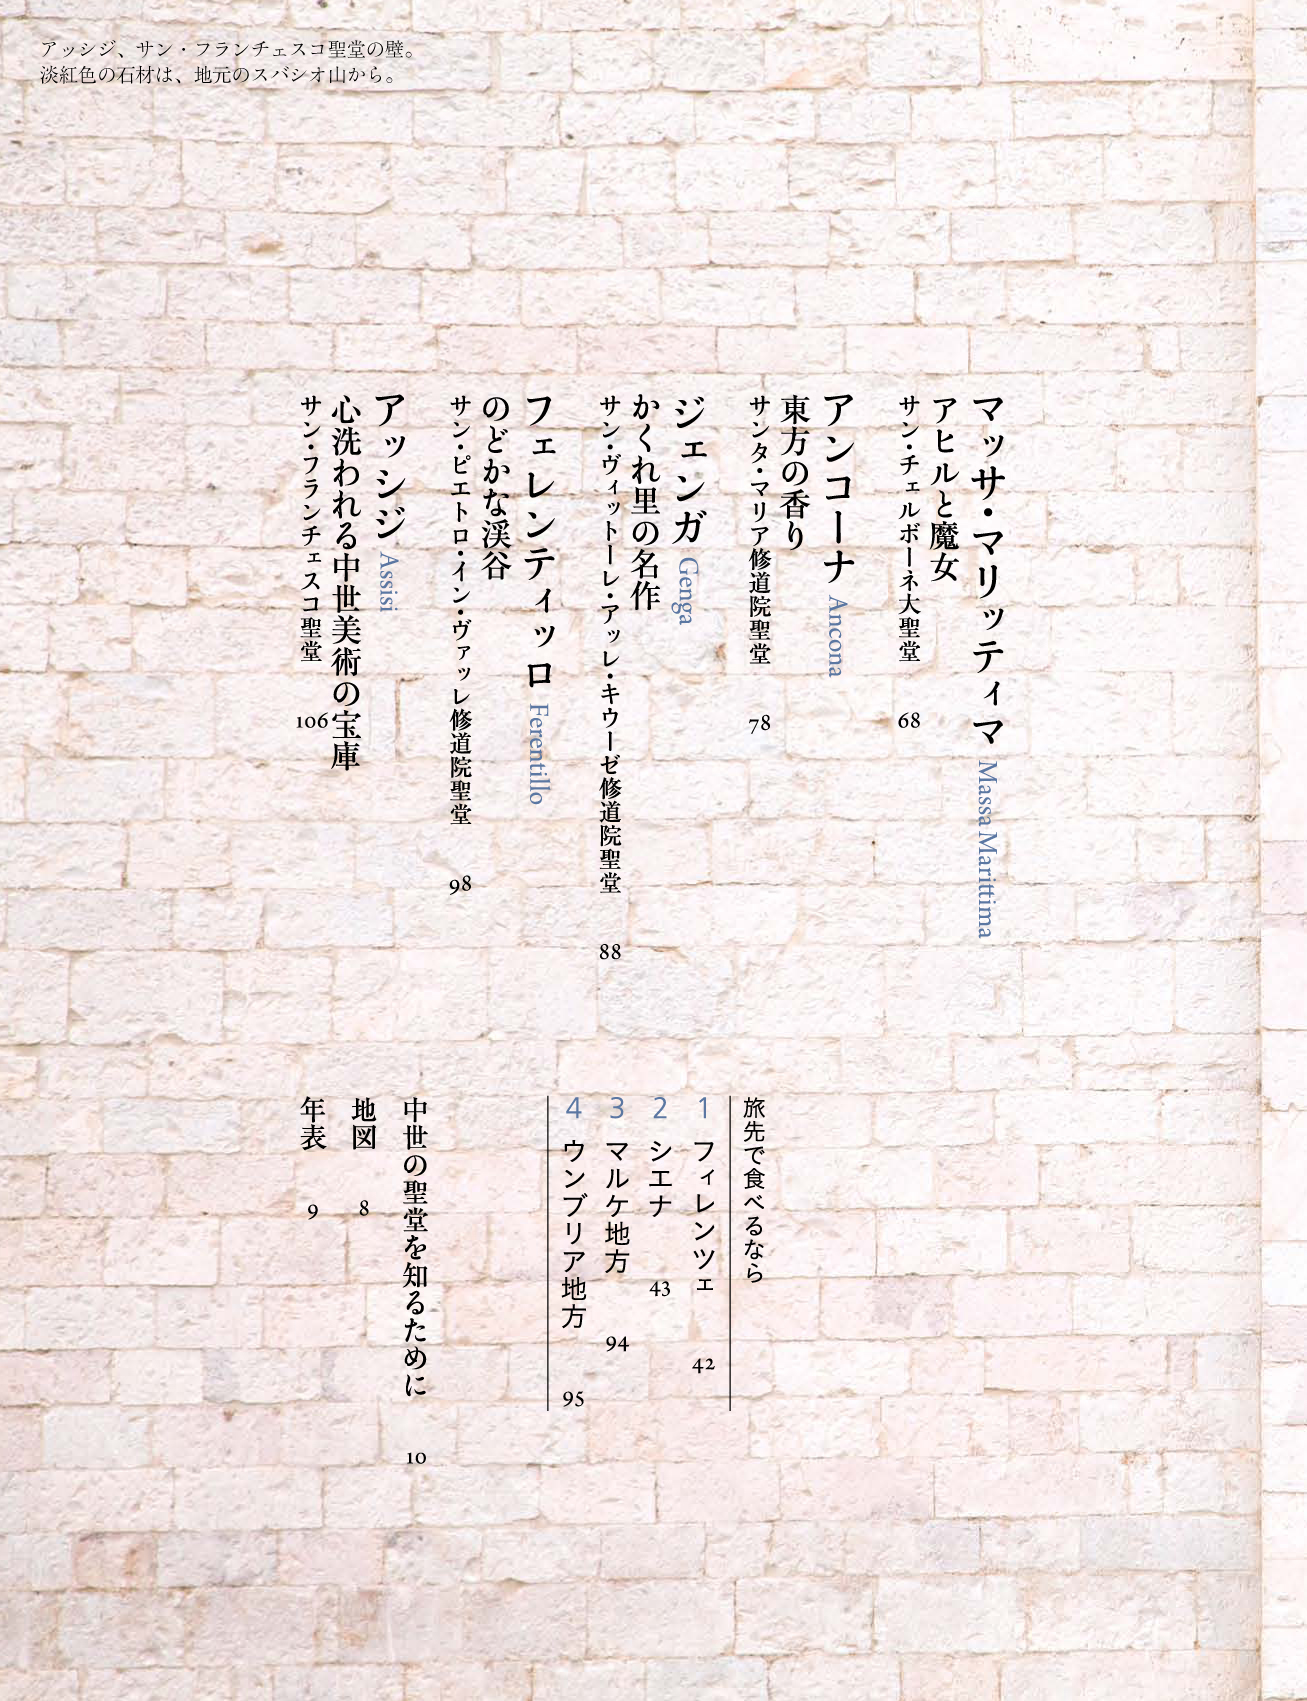 アッシジ、サン・フランチェスコ聖堂の壁。
淡紅色の石材は、地元のスバシオ山から。
マッサ・マリッティマ Massa Marittima
アヒルと魔女
サン・チェルボーネ大聖堂 68
アンコーナ Ancona
東方の香り
サンタ・マリア修道院聖堂 78
ジェンガ Genga
かくれ里の名作
サン・ヴィットーレ・アッレ・キウーゼ修道院聖堂 88
フェレンティッロ Ferentillo
のどかな渓谷
サン・ピエトロ・イン・ヴァッレ修道院聖堂 98
アッシジ Assisi
心洗われる中世美術の宝庫
サン・フランチェスコ聖堂 106
旅先で食べるなら
1 フィレンツェ 42
2 シエナ 43
3 マルケ地方 94
4 ウンブリア地方 95
中世の聖堂を知るために 10
地図 8
年表 9